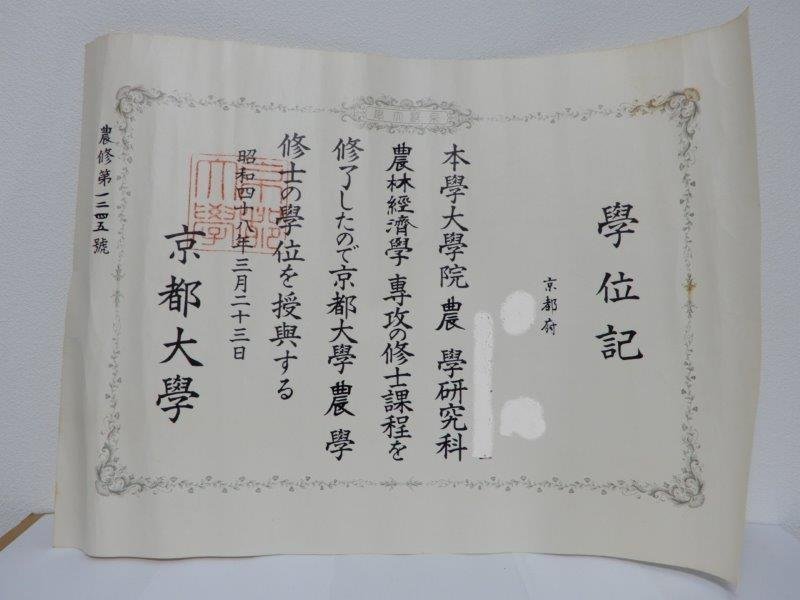 京都大學
學位記
京都府
本學大學院農學研究科
農林經濟學專攻の修士課程を
修了したので京都大學農學
修士の學位を授與する
昭和四十八年三月二十三日
京都大學
農修第一二四五號